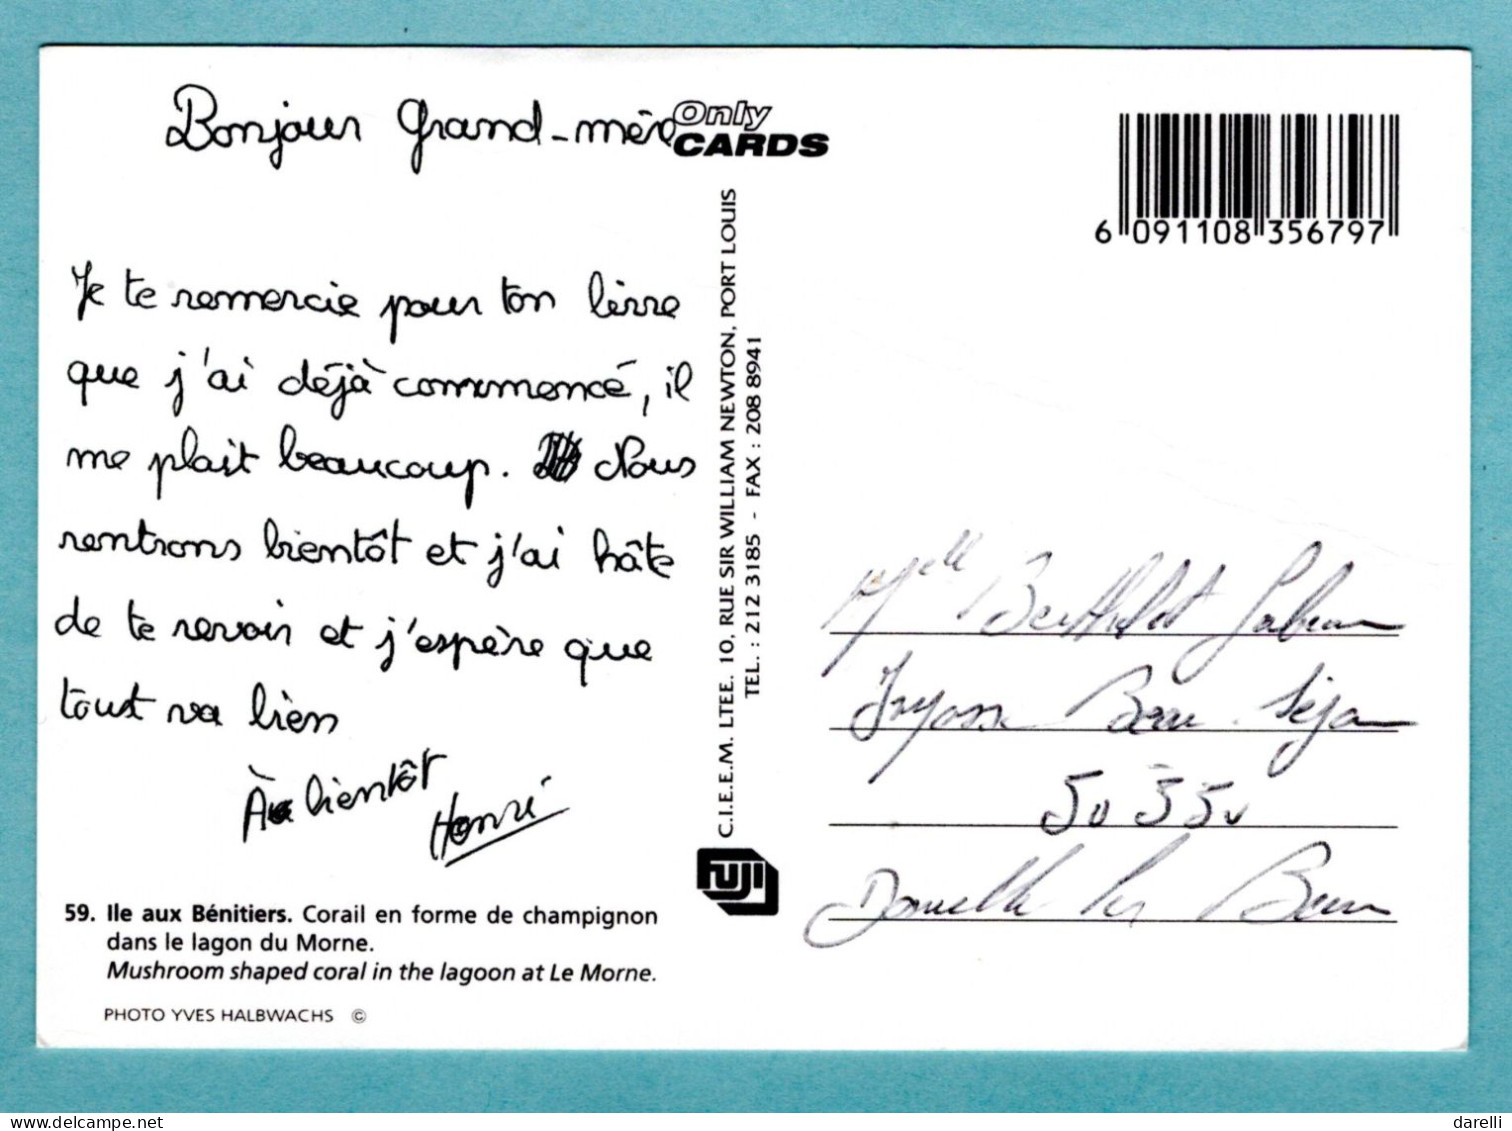 Bonjour Grand-mère
Je te remercie pour ton livre
que j'ai déjà commencé, il
me plait beaucoup. Nous
rentrons bientôt et j'ai hâte
de te revoir et j'espère que
tout va bien
À bientôt
Henri
59. Ile aux Bénitiers. Corail en forme de champignon
dans le lagon du Morne.
Mushroom shaped coral in the lagoon at Le Morne.
PHOTO YVES HALBWACHS ©
Only
CARDS
C.I.E.E.M. LTEE. 10, RUE SIR WILLIAM NEWTON, PORT LOUIS
TEL. : 212 3185 - FAX : 208 8941
FUJI
6 091108 356797
Melle Berthelot
Beau Séjour
darelli